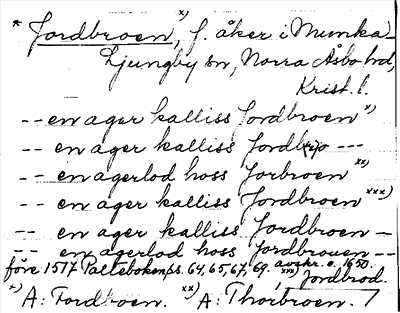 * Jordbroen x), f. åker i Munka-
Ljungby sn, Norra Åsbo hd,
Krist. l.
-- en ager kalliss Jordbroen x)
-- en ager kalliss Jordb(r)o ---
-- en agerlod hoss Jorbroen xx)
-- en ager kalliss Jordbroen xxx)
-- en ager kalliss Jordbroen -
-- en agerlod hoss Jordbrouen --
före 1517 Paltebokenps. 64, 65, 67, 69. avskr. c. 1650.
x) A: Fordbroen. xx) A: Thorbroen. xxx) Jordbrod.